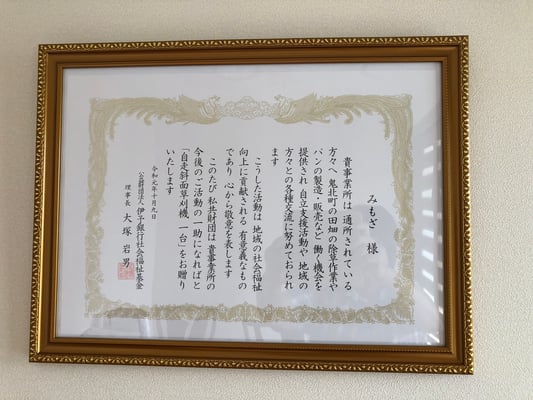 みもざ 様
貴事業所は 通所されている
方々へ 鬼北町の田畑の除草作業や
パンの製造・販売など 働く機会を
提供され 自立支援活動や 地域の
方々との各種交流に努めておられ
ます
こうした活動は 地域の社会福祉
向上に貢献される 有意義なもの
であり 心から敬意を表します
このたび 私共財団は 貴事業所の
今後のご活動の一助になればと
「自走斜面草刈機 一台」をお贈り
いたします
令和元年十月九日
公益財団法人 伊予銀行社会福祉基金
理事長 大塚岩男